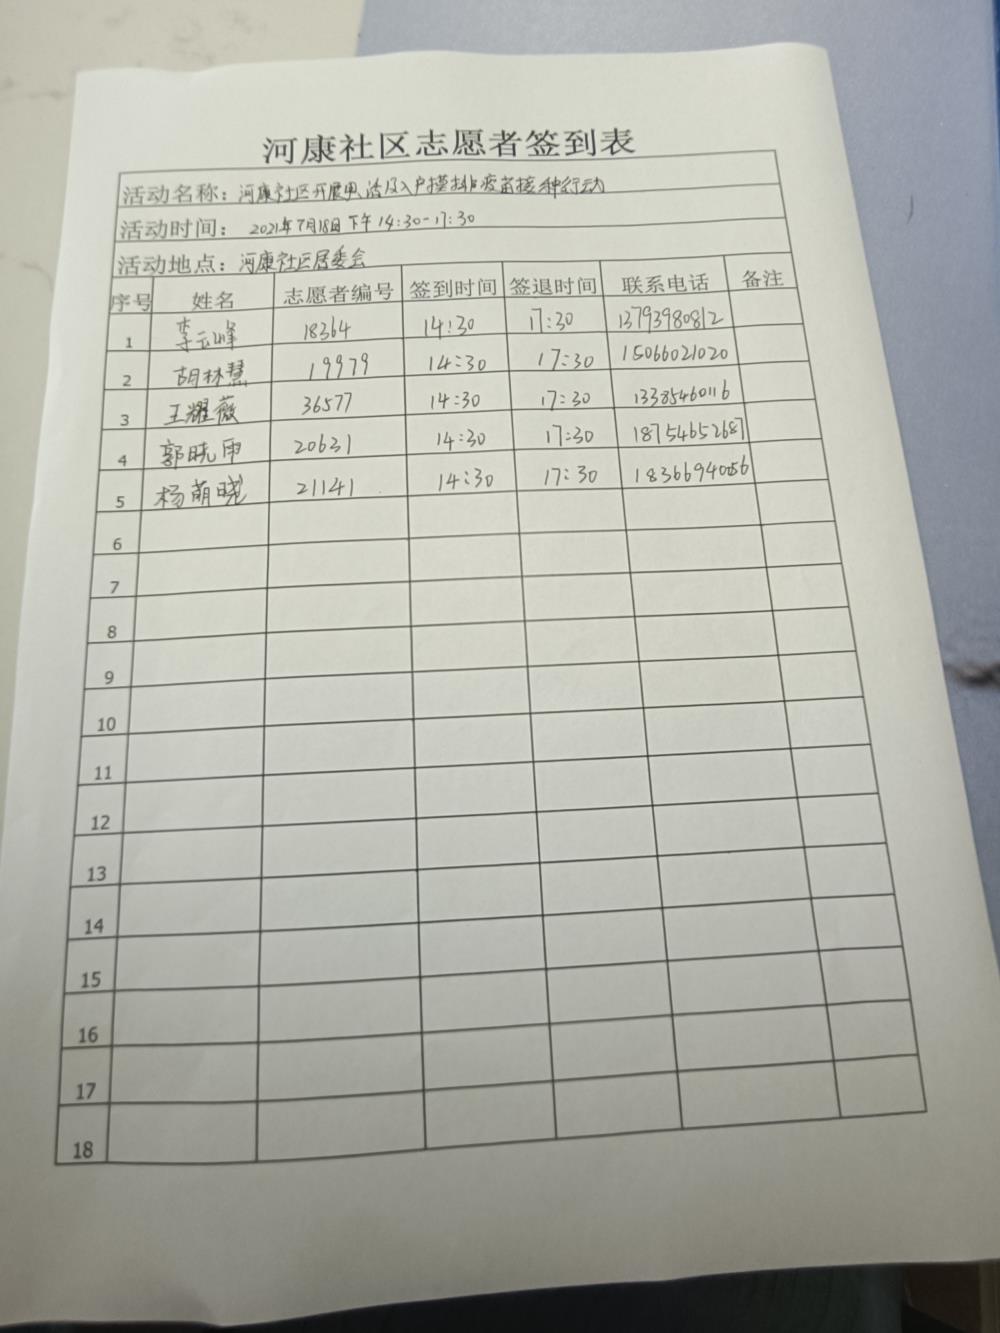 河康社区志愿者签到表
活动名称：河康社区开展电话及入户摸排疫苗接种行动
活动时间：2021年7月18日下午14:30-17:30
活动地点：河康社区居委会
序号 姓名 志愿者编号 签到时间 签退时间 联系电话 备注
1 李云峰 18364 14:30 17:30 13793980812
2 胡林慧 19979 14:30 17:30 15066021020
3 王耀薇 36577 14:30 17:30 13385460116
4 郭晓雨 20631 14:30 17:30 18754652687
5 杨萌晓 21141 14:30 17:30 18366940056
6
7
8
9
10
11
12
13
14
15
16
17
18